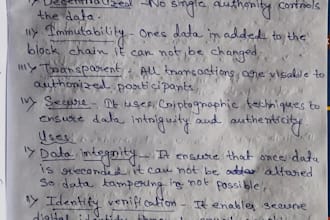 i) Decentralised - No single authority controls
the data.
ii) Immutability - Ones data in added to the
block chain it can not be changed
iii) Transparent : All transactions are visable to
authorized participants
iv) Secure - It uses Criptographic techniques to
ensure data intriguity and authenticity
Uses
i) Data integrity - It ensure that once data
is recorded it can not be altared
so data tampering is not possible.
ii) Identify verification - It enables secure
digital identity